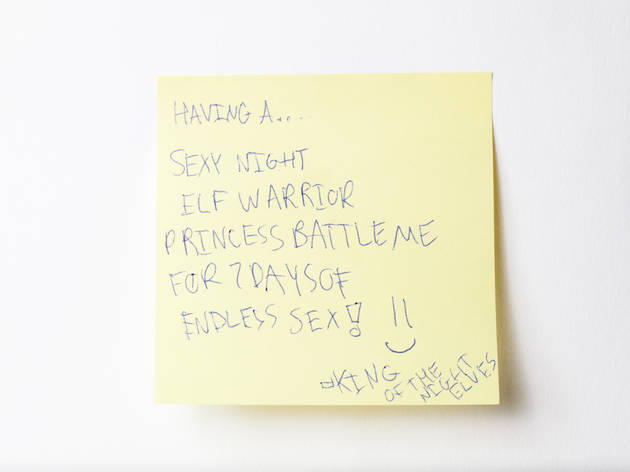 HAVING A....
SEXY NIGHT
ELF WARRIOR
PRINCESS BATTLE ME
FOR 7 DAYS OF
ENDLESS SEX!
KING
OF THE
NIGHT
ELVES